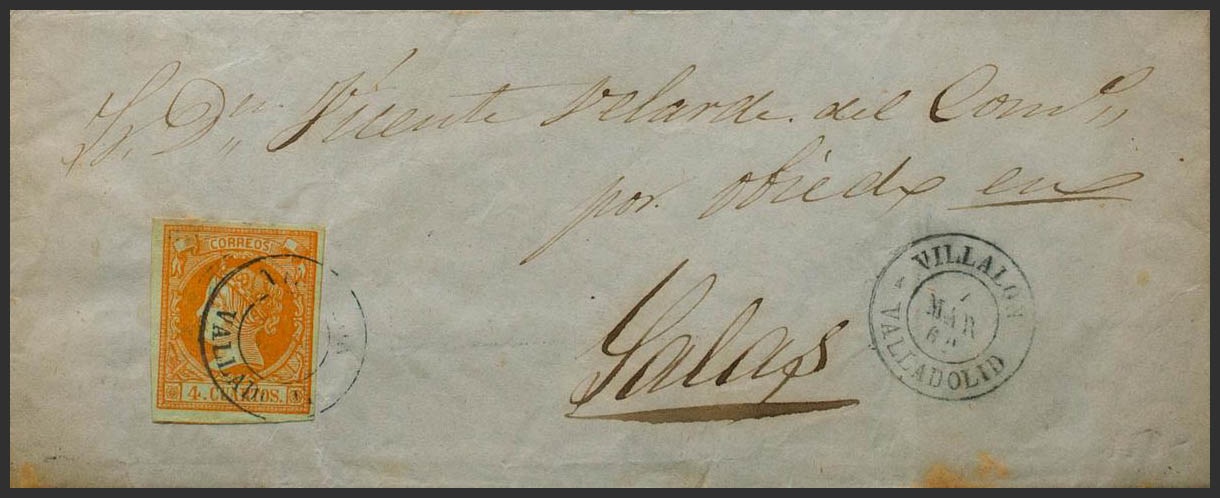 S. Dn. Vicente Velarde. del Como,,
por. Obiedo en
Salas
CORREOS
4. CUARTOS.
VALLADOLID
VILLALON
MAR
VALLADOLID